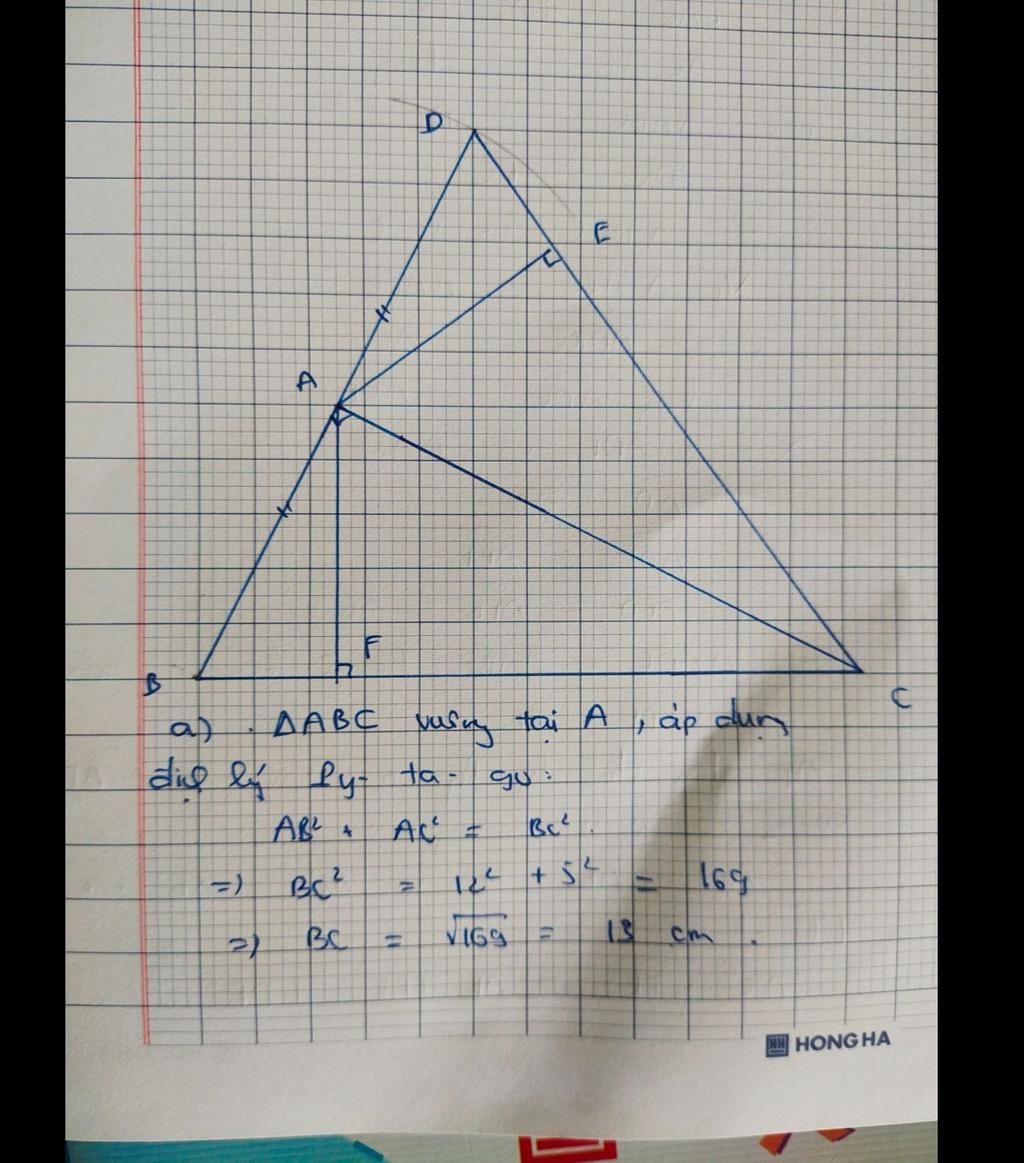 D
E
A
F
B
C
a) . ΔABC vuông tại A , áp dụng
định lý Py- ta- go:
AB² + AC² = BC².
=) BC² = 12² + 5² = 169
=) BC = √169 = 13 cm .
HONG HA